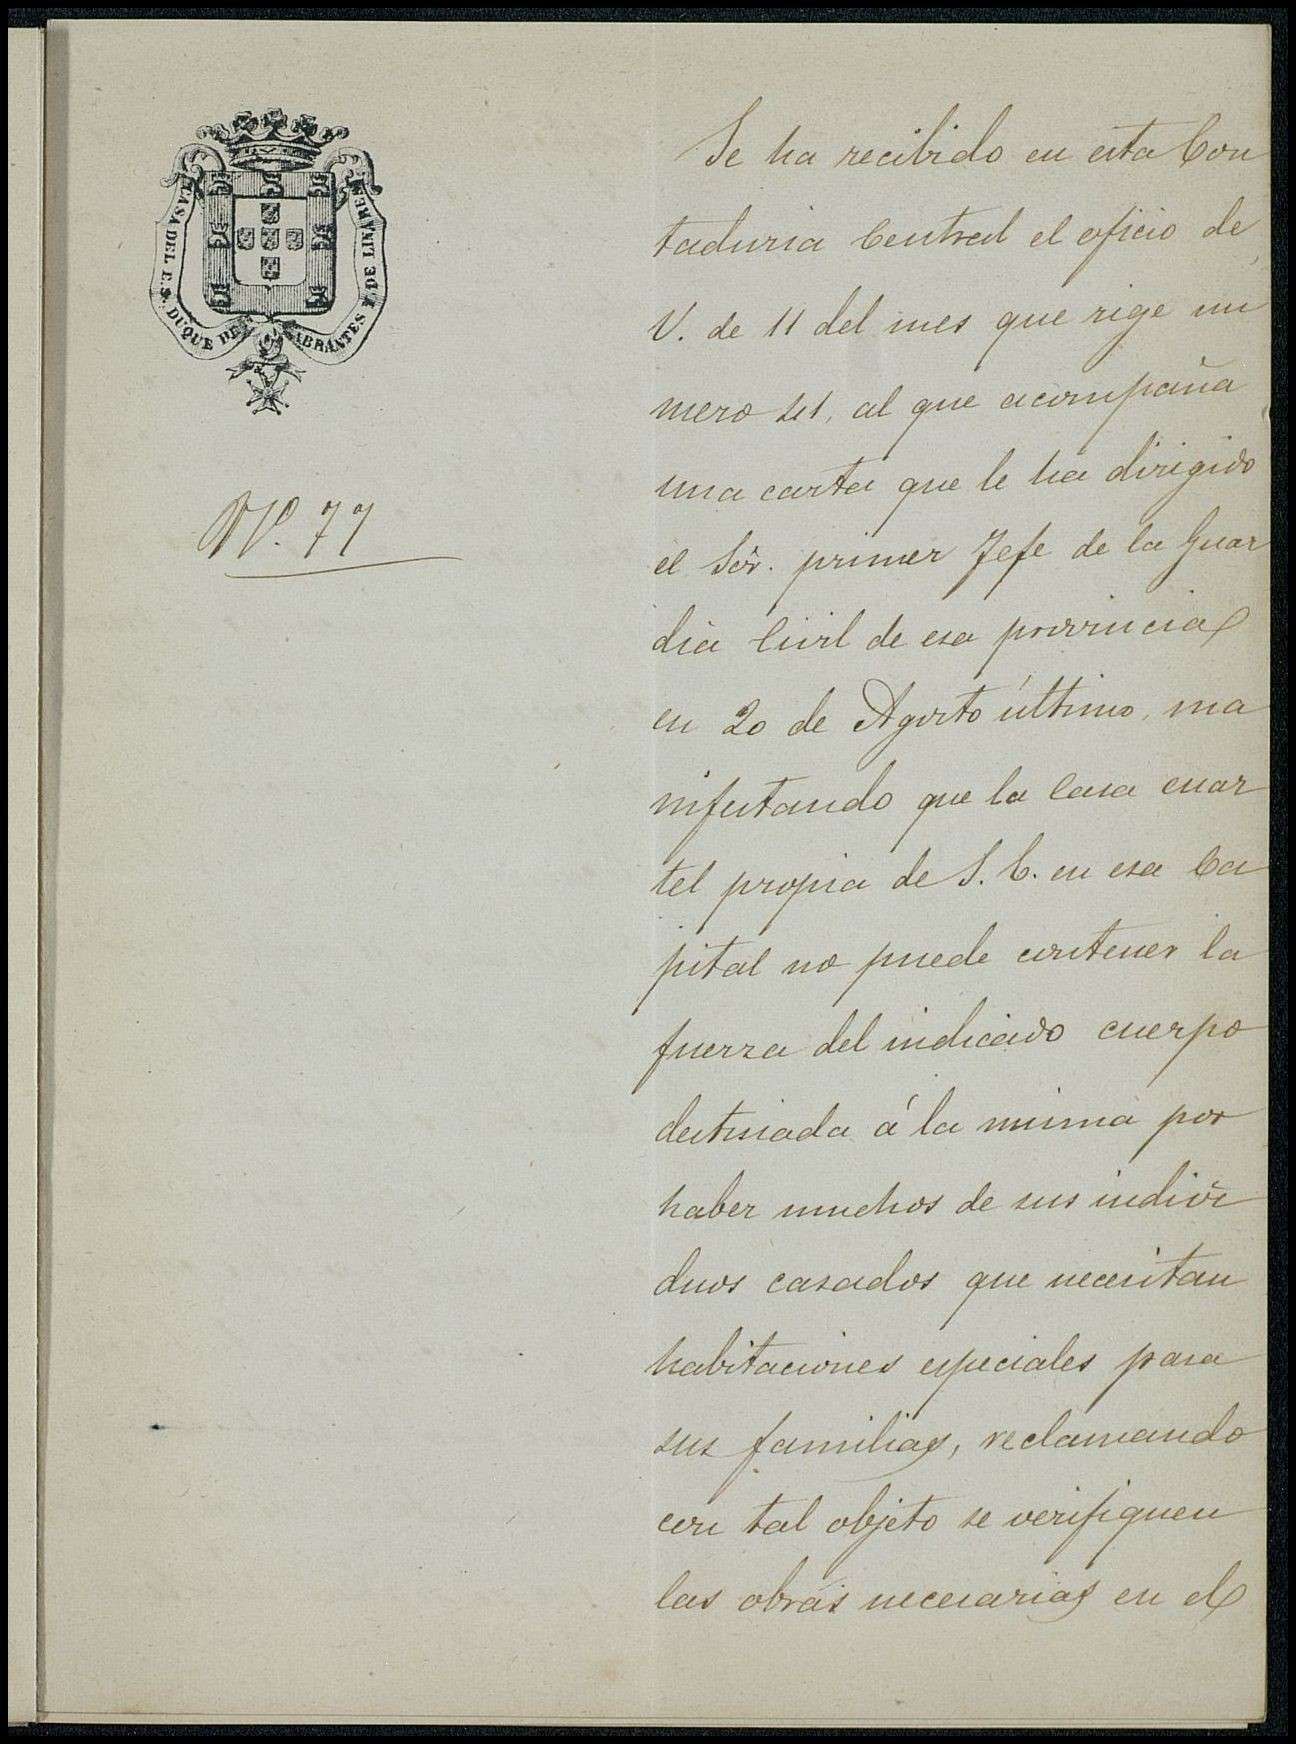 CASA DEL E.S. DUQUE DE ABRANTES Y DE LINARES
Nº. 77
Se ha recibido en esta Con
taduria Central el oficio de
V. de 11 del mes que rige nu
mero 41, al que acompaña
una carta que le ha dirigido
el Sôr. primer Jefe de la Guar
dia Civil de esa provincia
en 20 de Agosto último, ma
nifestando que la Casa cuar
tel propia de S. E. en esa Ca
pital no puede contener la
fuerza del indicado cuerpo
destinada á la misma por
haber muchos de sus indivi
duos casados que necesitan
habitaciones especiales para
sus familias, reclamando
con tal objeto se verifiquen
las obras necesarias en el